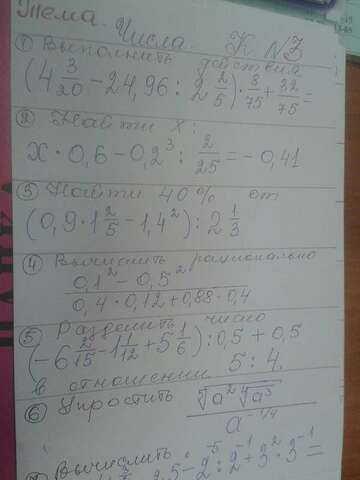 Тема. Числа. К. №3
① Выполнить действия
(4 3/20 - 24,96 : 2 2/5) · 8/75 + 32/75 =
② Найти x:
x · 0,6 - 0,2³ : 2/25 = - 0,41
③ Найти 40% от
(0,9 · 1 2/5 - 1,4²) : 2 1/3
④ Вычислить рационально
0,1² - 0,5²
0,4 · 0,12 + 0,88 · 0,4
⑤ Разделить число
(-6 2/15 - 1 1/12 + 5 1/6) : 0,5 + 0,5
в отношении 5 : 4.
⑥ Упростить
a^{-1/4}
Вычислить